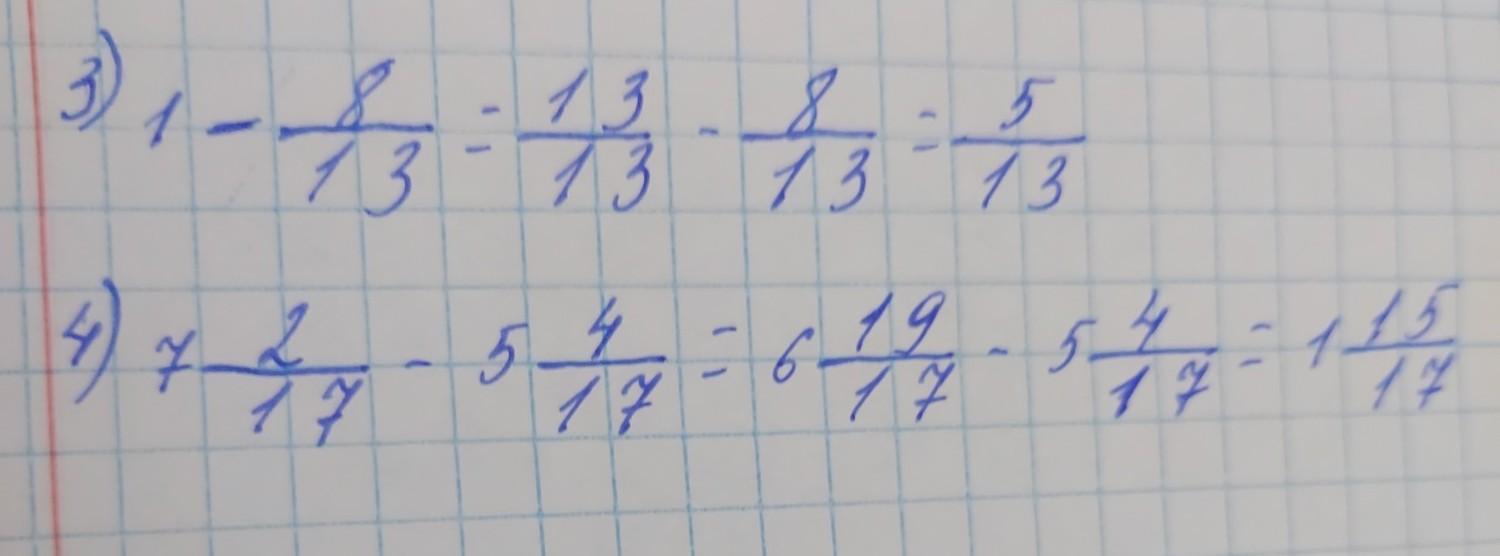 3) 1 - 8/13 = 13/13 - 8/13 = 5/13
4) 7 2/17 - 5 4/17 = 6 19/17 - 5 4/17 = 1 15/17